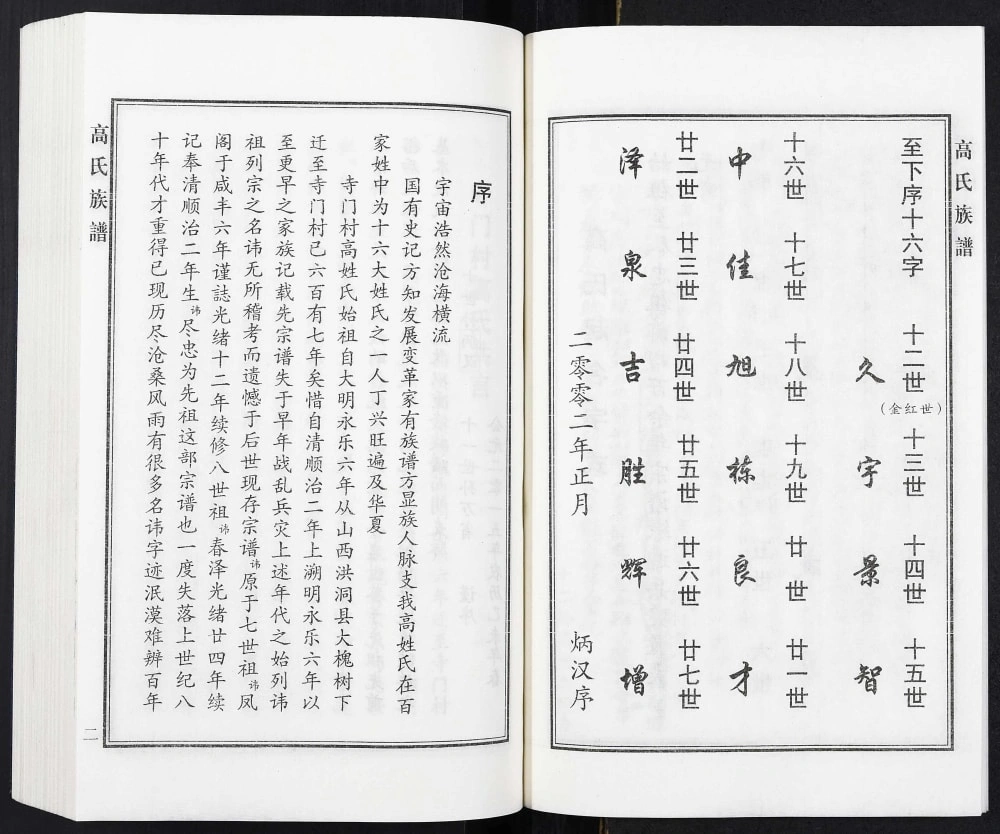 高氏族譜
至下序十六字
十二世(金红世) 十三世 十四世 十五世
久 宇 景 智
十六世 十七世 十八世 十九世 廿世 廿一世
中 佳 旭 栋 良 才
廿二世 廿三世 廿四世 廿五世 廿六世 廿七世
泽 泉 吉 胜 辉 增
二零零二年正月 炳汉序
序
宇宙浩然沧海横流
国有史记方知发展变革家有族谱方显族人脉支我高姓氏在百
家姓中为十六大姓氏之一人丁兴旺遍及华夏
寺门村高姓氏始祖自大明永乐六年从山西洪洞县大槐树下
迁至寺门村已六百有七年矣惜自清顺治二年上溯明永乐六年以
至更早之家族记载先宗谱失于早年战乱兵灾上述年代之始列讳
祖列宗之名讳无所稽考而遗憾于后世现存宗谱讳原于七世祖讳凤
阁于咸丰六年谨誌光绪十二年续修八世祖讳春泽光绪廿四年续
记奉清顺治二年生讳尽忠为先祖这部宗谱也一度失落上世纪八
十年代才重得已现历尽沧桑风雨有很多名讳字迹泯漠难辨百年
高氏族譜
二